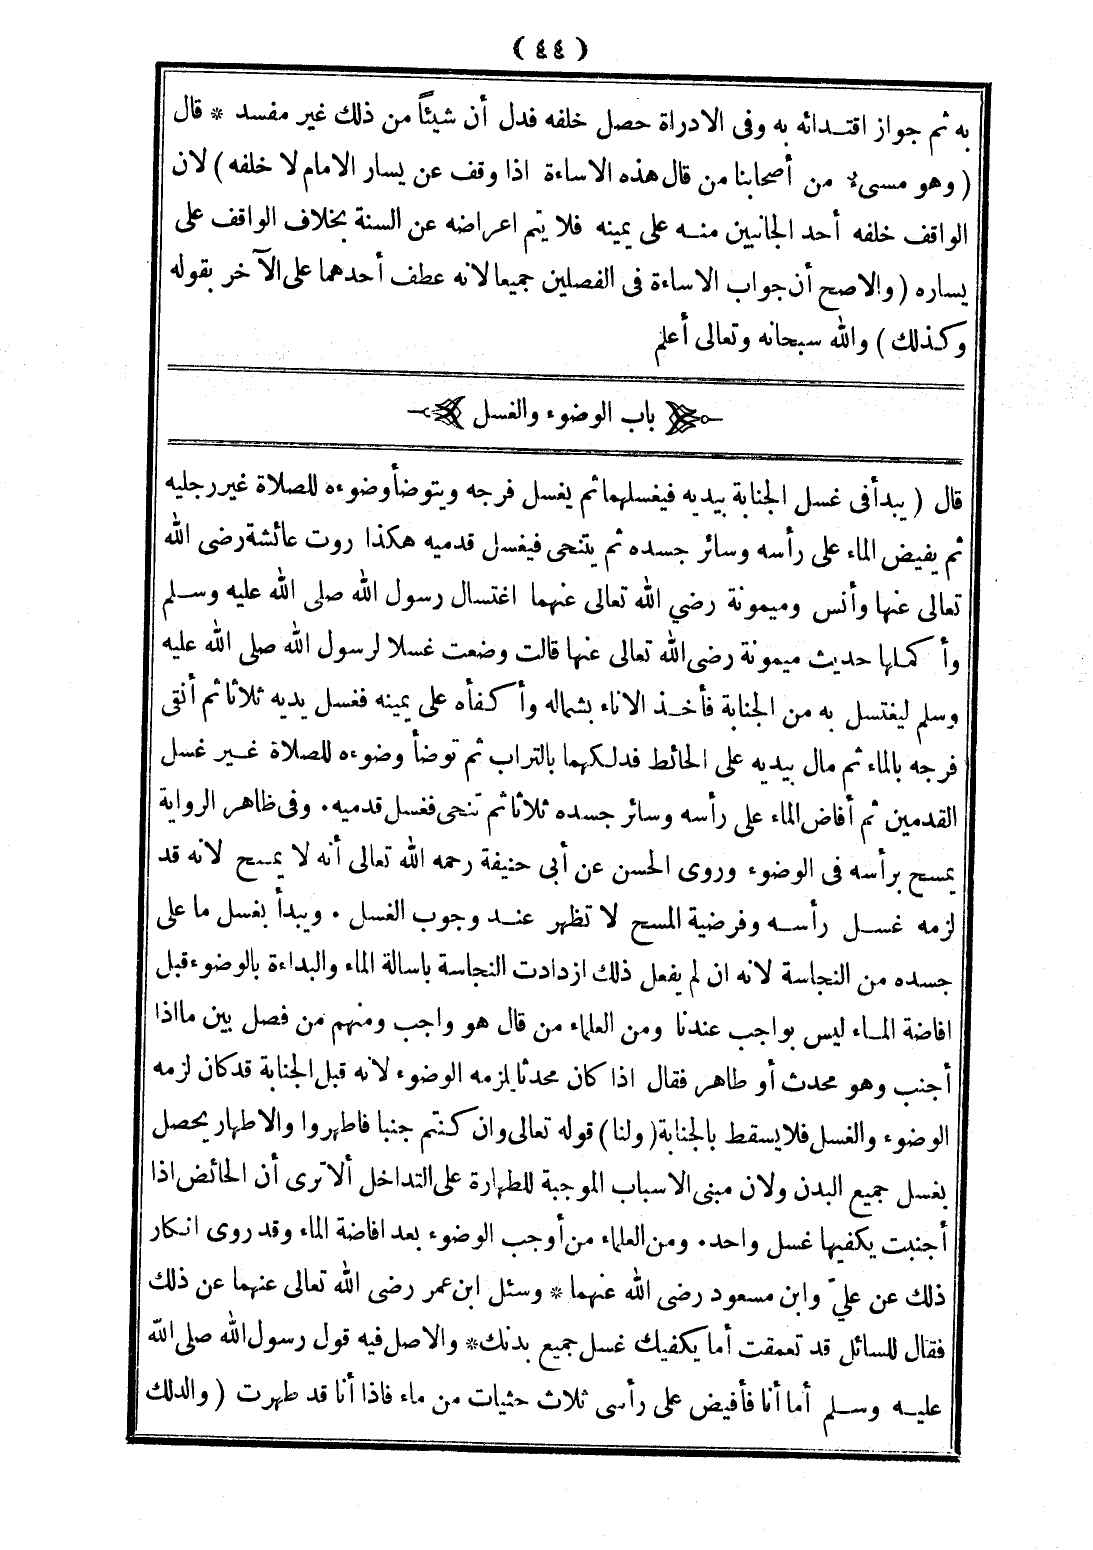 ( ٤٤ )
به ثم جواز اقتدائه به وفى الادراة حصل خلفه فدل أن شيئاً من ذلك غير مفسد * قال
( وهو مسىء من أصحابنا من قال هذه الاساءة اذا وقف عن يسار الامام لا خلفه ) لان
الواقف خلفه أحد الجانبين منه على يمينه فلا يتم اعراضه عن السنة بخلاف الواقف على
يساره ( والاصح أن جواب الاساءة فى الفصلين جميعا لانه عطف أحدهما على الآخر بقوله
وكذلك ) والله سبحانه وتعالى أعلم
باب الوضوء والغسل
قال ( يبدأ فى غسل الجنابة بيديه فيغسلهما ثم يغسل فرجه ويتوضأ وضوءه للصلاة غير رجليه
ثم يفيض الماء على رأسه وسائر جسده ثم يتنحى فيغسل قدميه هكذا روت عائشة رضى الله
تعالى عنها وأنس وميمونة رضي الله تعالى عنهما اغتسال رسول الله صلى الله عليه وسلم
وأكملها حديث ميمونة رضى الله تعالى عنها قالت وضعت غسلا لرسول الله صلى الله عليه
وسلم ليغتسل به من الجنابة فأخذ الاناء بشماله وأكفأه على يمينه فغسل يديه ثلاثا ثم أنقى
فرجه بالماء ثم مال بيديه على الحائط فدلكهما بالتراب ثم توضأ وضوءه للصلاة غير غسل
القدمين ثم أفاض الماء على رأسه وسائر جسده ثلاثا ثم تنحى فغسل قدميه. وفى ظاهر الرواية
يمسح برأسه فى الوضوء وروى الحسن عن أبى حنيفة رحمه الله تعالى أنه لا يمسح لانه قد
لزمه غسل رأسه وفرضية المسح لا تظهر عند وجوب الغسل . ويبدأ بغسل ما على
جسده من النجاسة لانه ان لم يفعل ذلك ازدادت النجاسة باسالة الماء والبداءة بالوضوء قبل
افاضة الماء ليس بواجب عندنا ومن العلماء من قال هو واجب ومنهم من فصل بين مااذا
أجنب وهو محدث أو طاهر فقال اذا كان محدثا يلزمه الوضوء لانه قبل الجنابة قد كان لزمه
الوضوء والغسل فلا يسقط بالجنابة ( ولنا ) قوله تعالى وان كنتم جنبا فاطهروا والاطهار يحصل
بغسل جميع البدن ولان مبنى الاسباب الموجبة للطهارة على التداخل ألا ترى أن الحائض اذا
أجنبت يكفيها غسل واحد. ومن العلماء من أوجب الوضوء بعد افاضة الماء وقد روى انكار
ذلك عن عليّ وابن مسعود رضى الله عنهما * وسئل ابن عمر رضى الله تعالى عنهما عن ذلك
فقال للسائل قد تعمقت أما يكفيك غسل جميع بدنك * والاصل فيه قول رسول الله صلى الله
عليه وسلم أما أنا فأفيض على رأسى ثلاث حثيات من ماء فاذا أنا قد طهرت ( والدلك